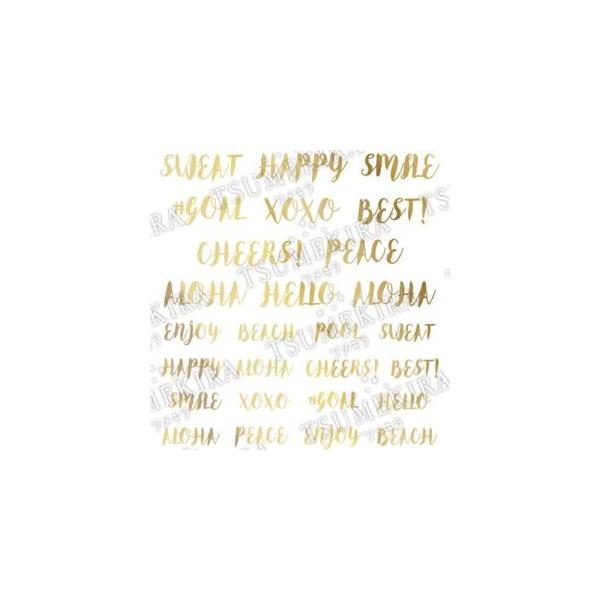 SWEAT HAPPY SMILE
#GOAL XOXO BEST!
CHEERS! PEACE
ALOHA HELLO ALOHA
ENJOY BEACH POOL SWEAT
HAPPY ALOHA CHEERS! BEST!
SMILE XOXO #GOAL HELLO
ALOHA PEACE ENJOY BEACH
TSUMEKIRA
ツメキラ